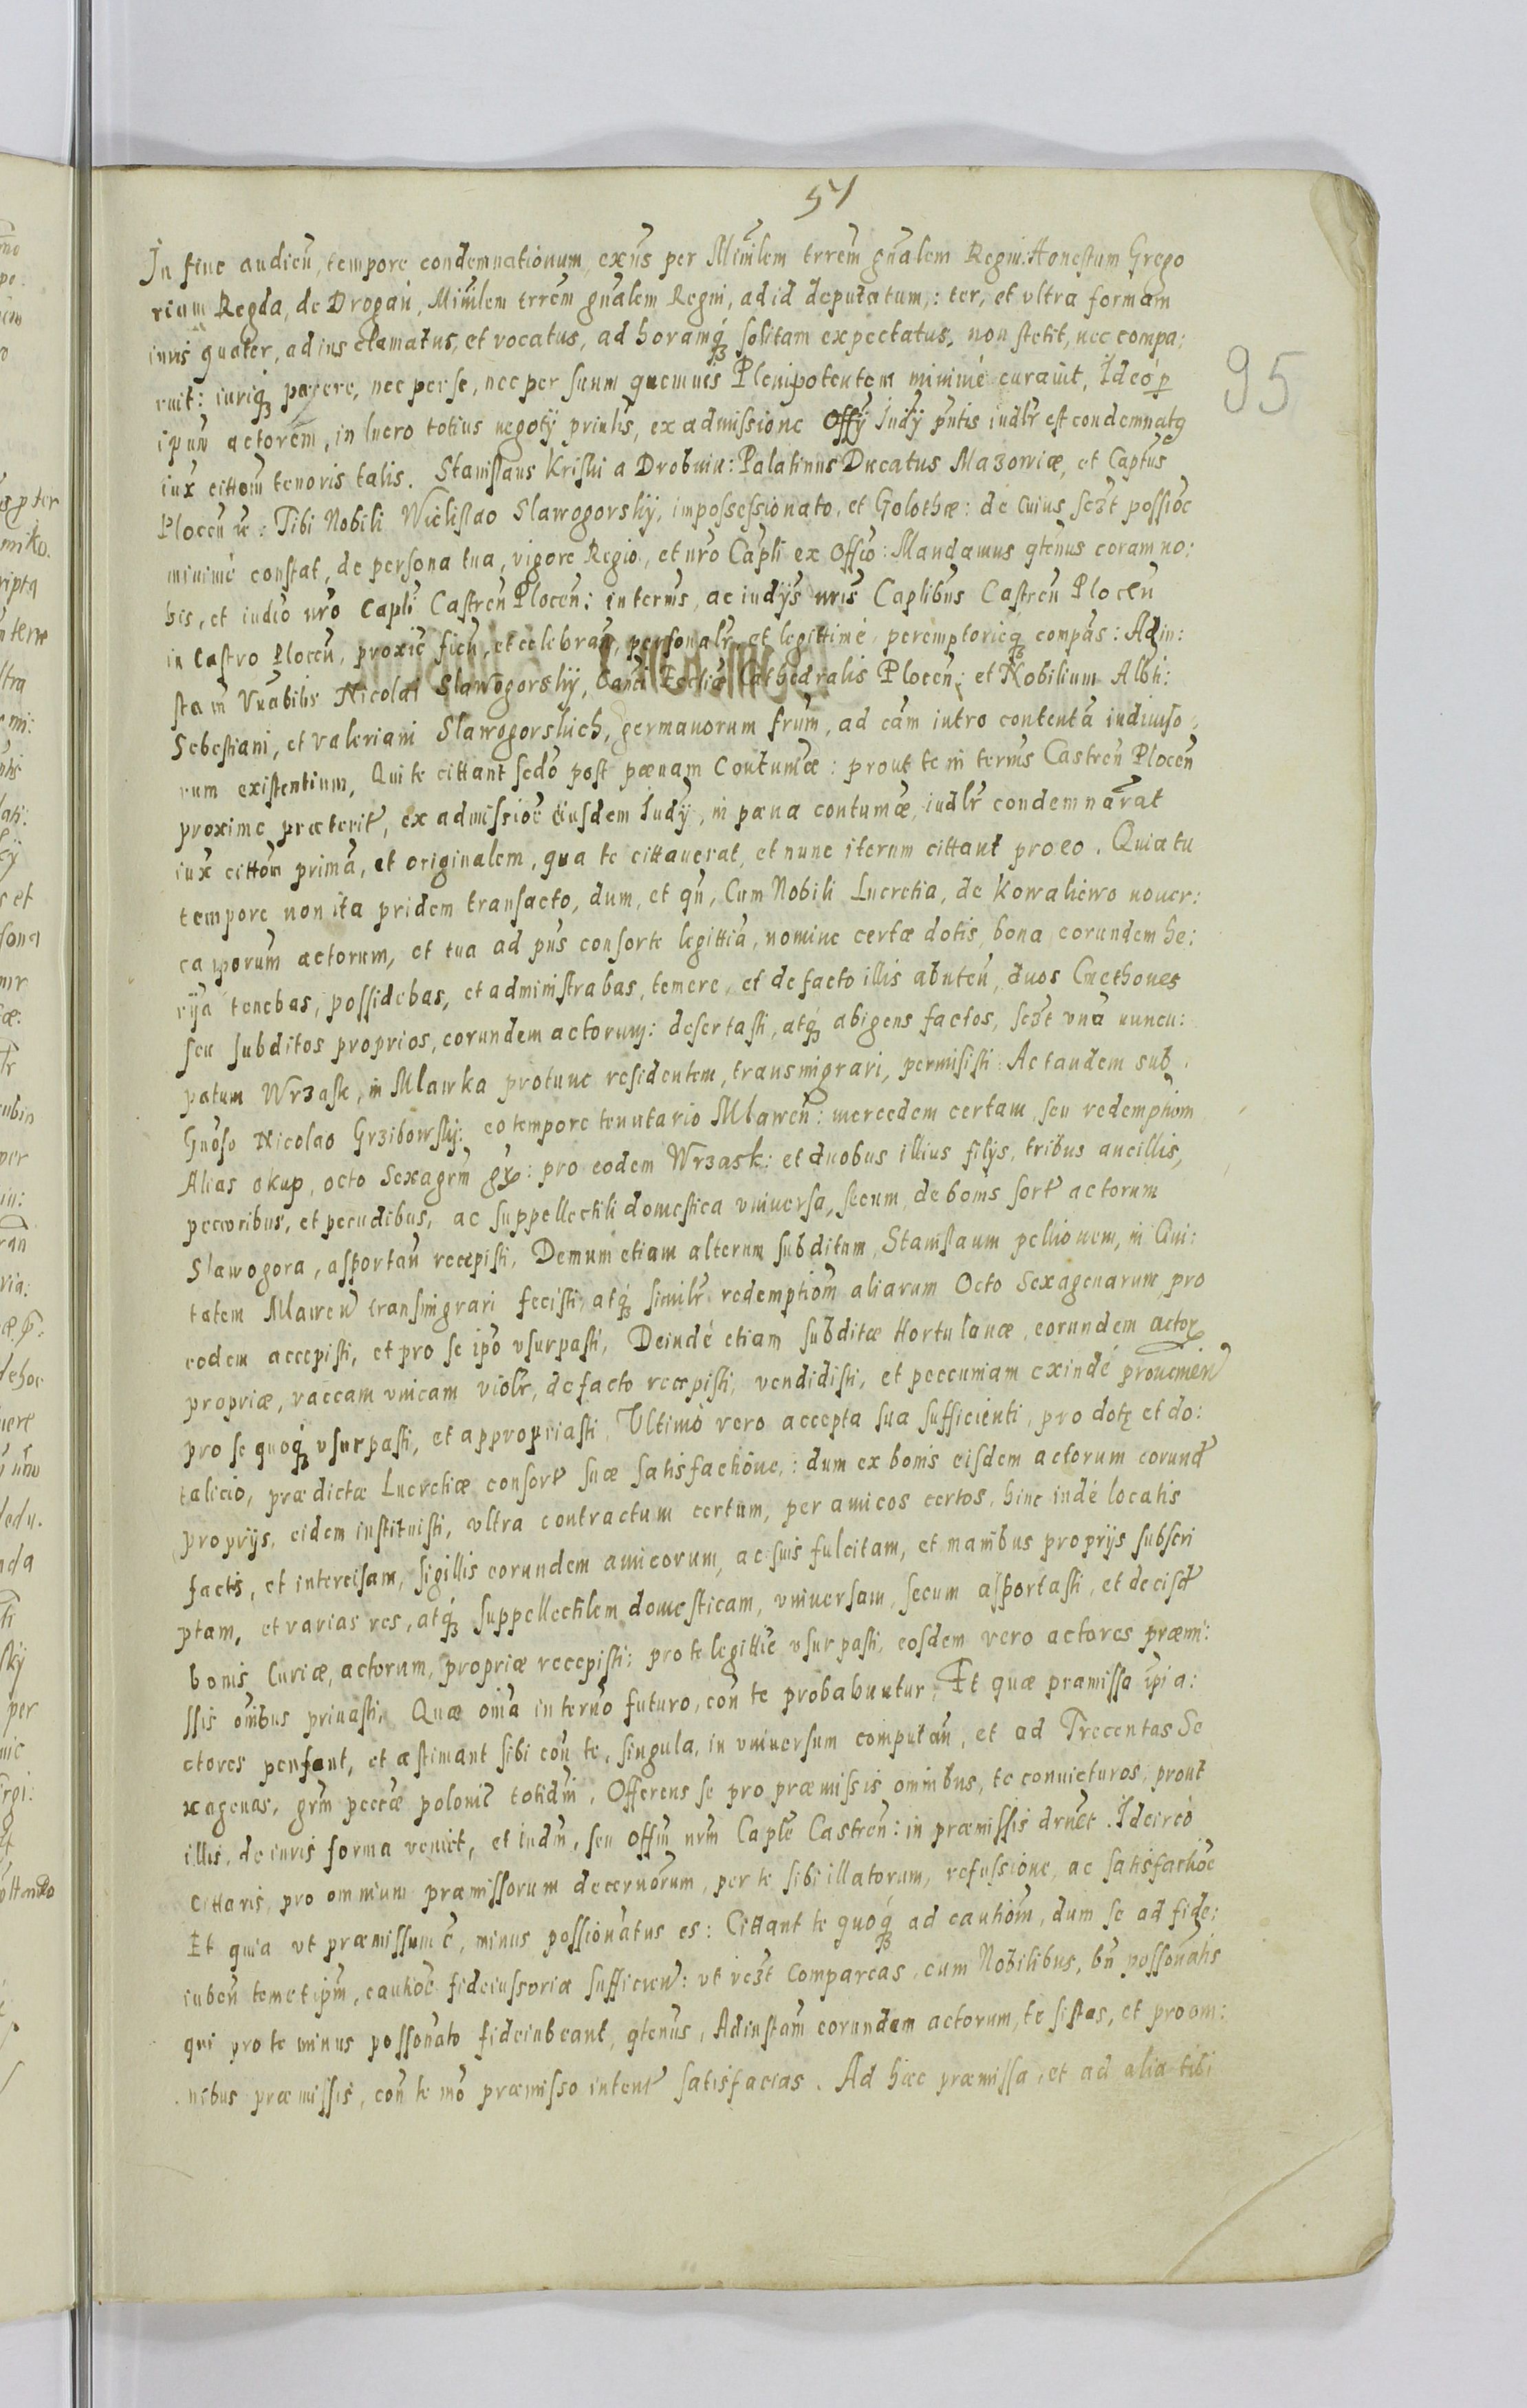 51
95
In fine audien, tempore condemnationum, exns per Minlem trrem gnalem Regni. Honestum Grego
rium Regda, de Drogan, Minlem trrem gnalem Regni, ad id deputatum,: ter, et vltra formam
iuris quater, ad ius clamatus, et vocatus, ad horamq solitam expectatus, non stetit, nec compa:
ruit: iuriq parere, nec per se, nec per suum quemuis Plenipotentem minimè curauit, Ideo p
ipum actorem, in lucro totius negoty prinlis, ex admissione Offy Iudy pntis iudlr est condemnatg
iux cittom tenoris talis. Stanislaus Kriski a Drobnin: Palatinus Ducatus Mazowiæ, et Captus
Plocen &: Tibi Nobili Wiclislao Slawogorsky, impossessionato, et Golothæ: de cuius sczt possioe
minimè constat, de persona tua, vigore Regio, et nro Capli ex Offio: Mandamus qtenus coram no:
bis, et iudio nro Capli Castren Plocen: in termis, ac iudys nris Caplibus Castren Plocen
in Castro Plocen, proxie fien, et celebran, personalr, et legittimè, peremptorieq compas: Ad in:
stam Vnabilis Nicolai Slawogorsky, Canci Eccliæ Cathedralis Plocen: et Nobilium Albti:
Sebestiani, et Valeriani Slawogorskich, germanorum frum, ad eam intro contenta indiuiso:
rum existentium, Qui te cittant sedo post pœnam Contumæ: prout te in termis Castren Plocen
proxime præterit, ex admissioe eiusdem Iudy, in pæna contumæ, iudlr condemnarat
iux cittom prima, et originalem, qua te cittauerat, et nunc iterum cittant pro eo. Quia tu
tempore non ita pridem transacto, dum, et qn, Cum Nobili Lucretia, de Kowaliewo nouer:
ca iporum actorum, et tua ad pns conforte legittia, nomine certæ dotis, bona eorundem he:
rija tenebas, possidebas, et administrabas, temere, et de facto illis abuten, duos Cmethones
seu subditos proprios, eorundem actorum: desertasti, atq abigens factos, sczt vnà nuncu:
patum Wrzask, in Mlawka protunc residentem, transmigrari, permisisti: Ac tandem sub
Gnoso Nicolao Grzibowsky: eo tempore tenutario Mlawen: mercedem certam, seu redemptiom
Alias okup, octo Sexagrm gr: pro eodem Wrzask: et duobus illius filys, tribus ancillis,
pecoribus, et pecudibus, ac suppellectili domestica vniuersa, secum, de bonis sort actorum
Slawogora, asportan recepisti. Demum etiam alterum subditum, Stanislaum pellionem, in Ciui:
tatem Mlawen transmigrari fecisti, atq similr redemptiom aliarum Octo Sexagenarum, pro
eodem accepisti, et pro se ipo vsurpasti, Deindè etiam subditæ Hortulanæ, eorundem actor
propriæ, vaccam vnicam violr, de facto recepisti, vendidisti, et peccuniam exindè prouenien
pro se quoq vsurpasti, et appropriasti. Vltimò vero accepta sua sufficienti, pro dote et do:
talicio, prædictæ Lucretiæ consort suæ satisfactione,: dum ex bonis eisdem actorum eorund
proprijs, eidem instituisti, vltra contractum certum, per amicos certos, hinc indè locatis
factis, et intercisam, sigillis eorundem amicorum, ac suis fulcitam, et manibus proprijs subscri
ptam, et varias res, atq suppellectilem domesticam, vniuersam, secum asportasti, et de eisd
bonis Curiæ, actorum, propriæ recepisti: pro te legittie vsurpasti, eosdem vero actores præmi:
ssis omibus priuasti. Quæ omia in termo futuro, con te probabuntur, Et quæ pramissa ipi a:
ctores pensant, et æstimant sibi con te, singula, in vniuersum computan, et ad Trecentas Se
xagenas, grm peccæ polonic totidm, Offerens se pro præmissis omnibus, te conuicturos, prout
illis, de iuris forma veniet, et iudm, seu offm nrm Caple Castren: in præmissis drnet. Idcircò
Cittaris, pro omnium præmissorum decernorum, per te sibi illatorum, refussione, ac satisfactioe
Et quia vt præmissum e, minus possionatus es: Cittant te quoq ad cautiom, dum se ad fide:
iuben temet ipm, cautioe fideiussoria sufficien: vt vczt Compareas, cum Nobilibus, bn possonatis
qui pro te minus possonato fideiubeant, qtenus, Ad instam eorundem actorum, te sistas, et pro om:
nibus præmissis, con te mo præmisso intent satisfacias. Ad hæc præmissa, et ad alia tibi